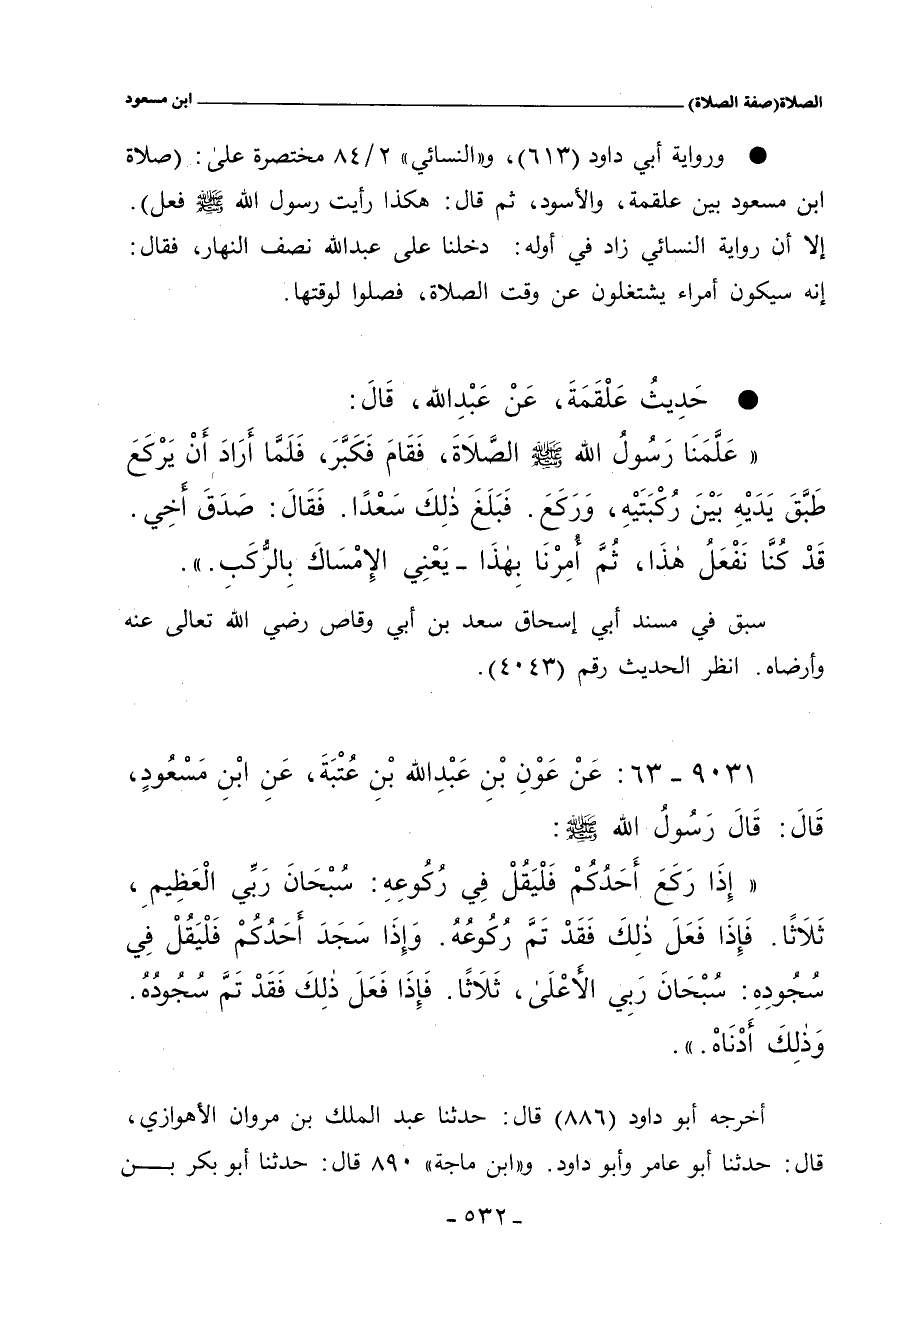 الصلاة(صفة الصلاة) ـــــــــــــــــ ابن مسعود
● ورواية أبي داود (٦١٣)، و«النسائي» ٨٤/٢ مختصرة علىٰ: (صلاة
ابن مسعود بين علقمة، والأسود، ثم قال: هكذا رأيت رسول الله ﷺ فعل).
إلا أن رواية النسائي زاد في أوله: دخلنا على عبدالله نصف النهار، فقال:
إنه سيكون أمراء يشتغلون عن وقت الصلاة، فصلوا لوقتها.
● حَدِيثُ عَلْقَمَةَ، عَنْ عَبْدِالله، قَالَ:
« عَلَّمَنَا رَسُولُ الله ﷺ الصَّلَاةَ، فَقَامَ فَكَبَّرَ، فَلَمَّا أَرَادَ أَنْ يَرْكَعَ
طَبَّقَ يَدَيْهِ بَيْنَ رُكْبَتَيْهِ، وَرَكَعَ. فَبَلَغَ ذٰلِكَ سَعْدًا. فَقَالَ: صَدَقَ أَخِي.
قَدْ كُنَّا نَفْعَلُ هٰذَا، ثُمَّ أُمِرْنَا بِهٰذَا ـ يَعْنِي الإِمْسَاكَ بِالرُّكَبِ.».
سبق في مسند أبي إسحاق سعد بن أبي وقاص رضي الله تعالى عنه
وأرضاه. انظر الحديث رقم (٤٠٤٣).
٩٠٣١ ـ ٦٣: عَنْ عَوْنِ بْنِ عَبْدِالله بْنِ عُتْبَةَ، عَنِ ابْنِ مَسْعُودٍ،
قَالَ: قَالَ رَسُولُ الله ﷺ:
« إِذَا رَكَعَ أَحَدُكُمْ فَلْيَقُلْ فِي رُكُوعِهِ: سُبْحَانَ رَبِّي الْعَظِيمِ،
ثَلَاثًا. فَإِذَا فَعَلَ ذٰلِكَ فَقَدْ تَمَّ رُكُوعُهُ. وَإِذَا سَجَدَ أَحَدُكُمْ فَلْيَقُلْ فِي
سُجُودِهِ: سُبْحَانَ رَبِي الأَعْلَىٰ، ثَلَاثًا. فَإِذَا فَعَلَ ذٰلِكَ فَقَدْ تَمَّ سُجُودُهُ.
وَذٰلِكَ أَدْنَاهْ.».
أخرجه أبو داود (٨٨٦) قال: حدثنا عبد الملك بن مروان الأهوازي،
قال: حدثنا أبو عامر وأبو داود. و«ابن ماجة» ٨٩٠ قال: حدثنا أبو بكر بـــن
ـ ٥٣٢ ـ